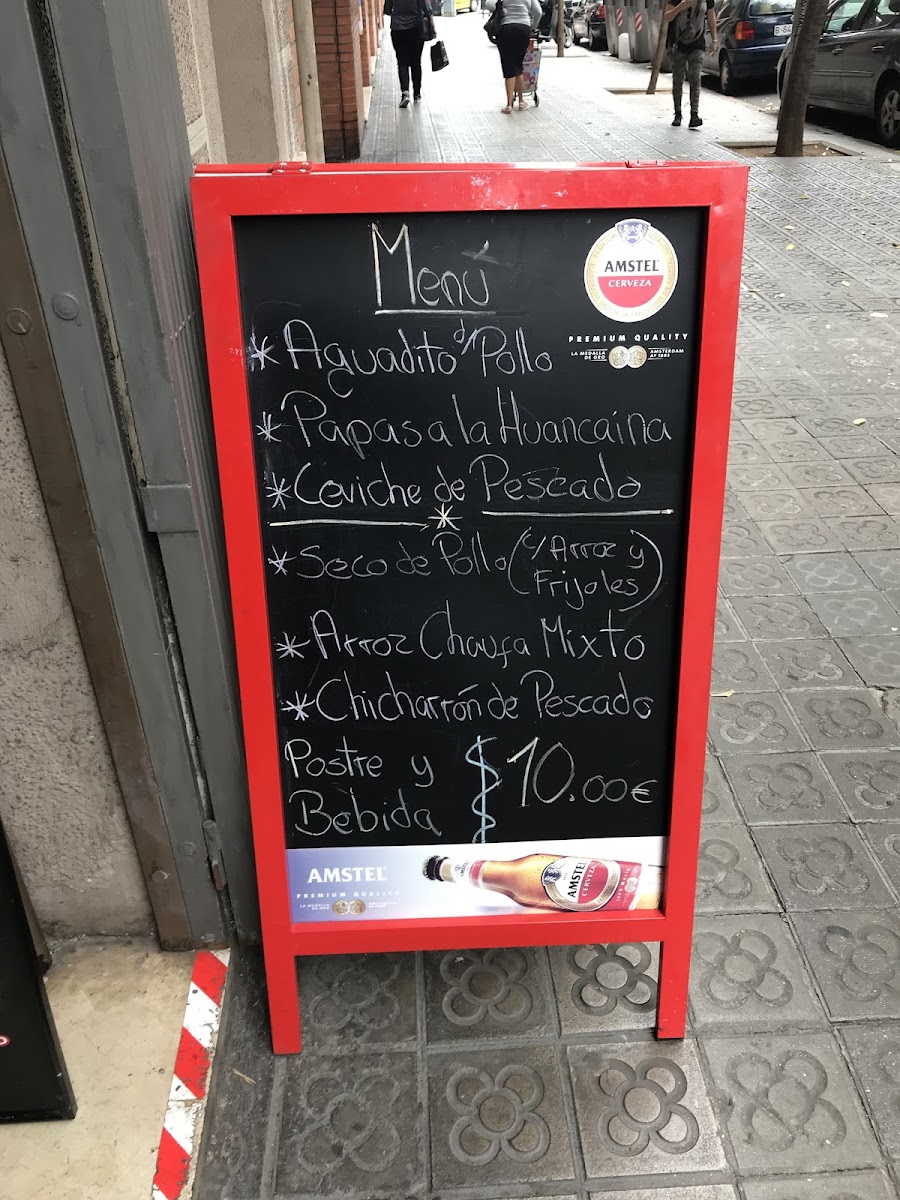 Menú
AMSTEL
CERVEZA
PREMIUM QUALITY
LA MEDALLA DE ORO
AMSTERDAM Aº 1883
* Aguadito d' Pollo
* Papas a la Huancaina
* Ceviche de Pescado
*
* Seco de Pollo (c/ Arroz y
Frijoles)
* Arroz Chaufa Mixto
* Chicharrón de Pescado
Postre y
Bebida
10.00€
AMSTEL
PREMIUM QUALITY
AMSTEL
CERVEZA